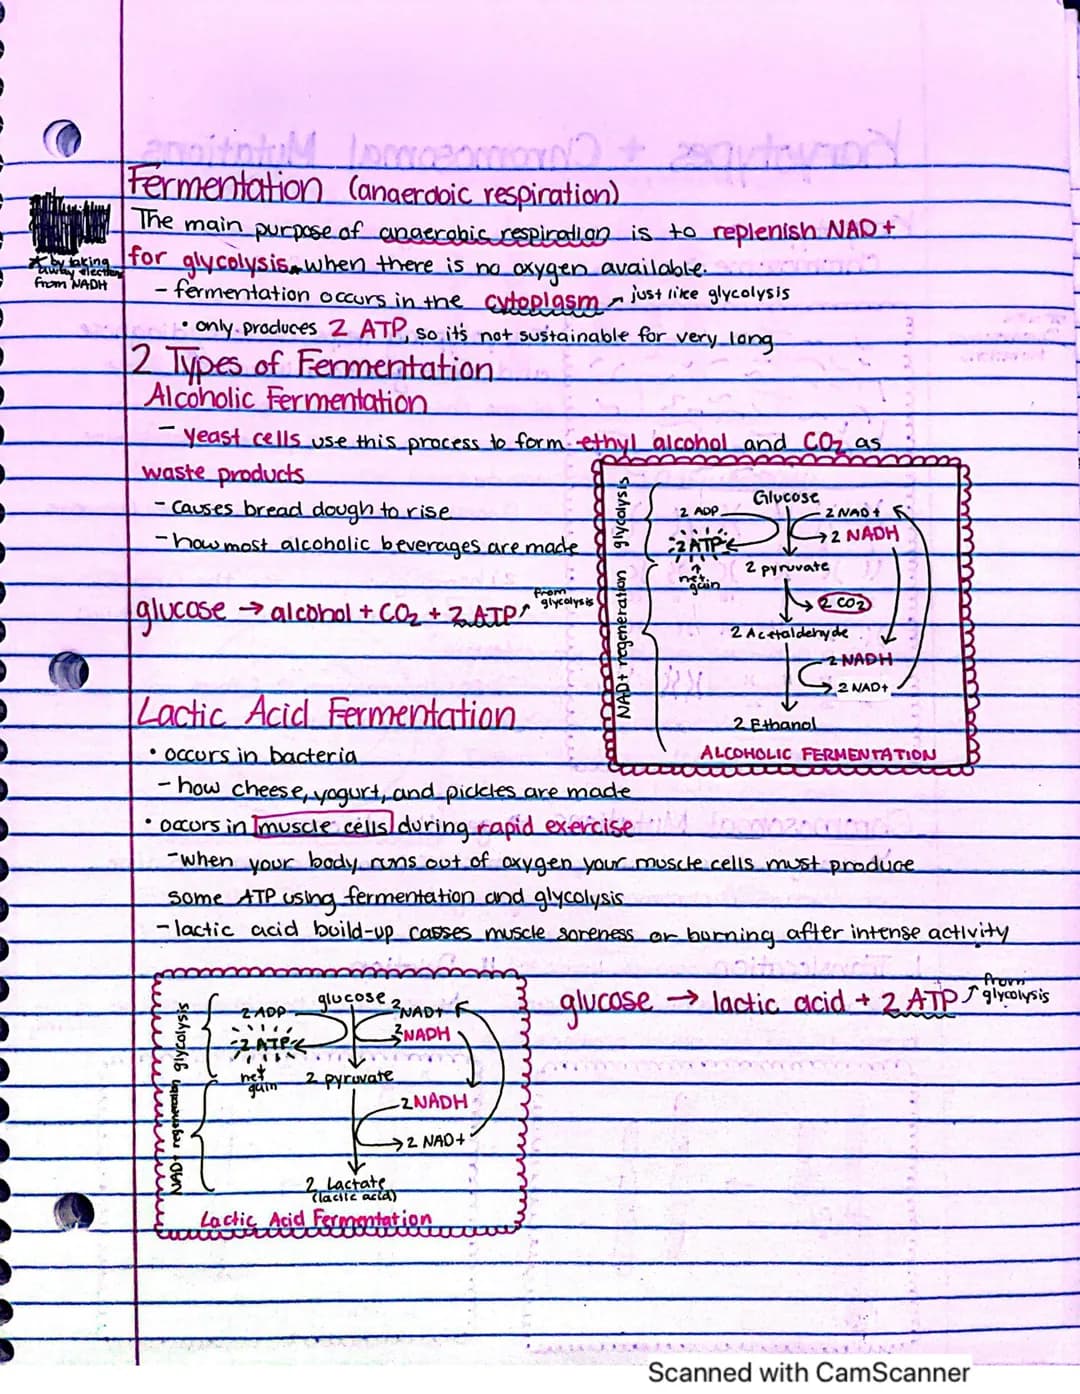 Fermentation (anaerobic respiration)
The main purpose of anaerobic respiration is to replenish NAD+
for glycolysis * when there is no oxygen available.
* by taking
away electrons
from NADH
- fermentation occurs in the cytoplasm just like glycolysis
• only produces 2 ATP, so it's not sustainable for very long
2 Types of Fermentation
Alcoholic Fermentation
- yeast cells use this process to form ethyl alcohol and CO2 as
waste products
- causes bread dough to rise
- how most alcoholic beverages are made
glucose → alcohol + CO2 + 2 ATP from glycolysis
glycolysis
NAD+ regeneration
Glucose
2 ADP
2 NAD+
2 ATP
2 NADH
net gain
2 pyruvate
2 CO2
2 Acetaldehyde
2 NADH
2 NAD+
2 Ethanol
ALCOHOLIC FERMENTATION
Lactic Acid Fermentation
• occurs in bacteria
- how cheese, yogurt, and pickles are made
• occurs in muscle cells during rapid exercise
- when your body runs out of oxygen your muscle cells must produce
some ATP using fermentation and glycolysis
- lactic acid build-up causes muscle soreness or burning after intense activity
glucose → lactic acid + 2 ATP from glycolysis
glycolysis
NAD+ regeneration
glucose
2 ADP
2 NAD+
2 NADH
2 ATP
net gain
2 pyruvate
2 NADH
2 NAD+
2 Lactate
(lactic acid)
Lactic Acid Fermentation
Scanned with CamScanner